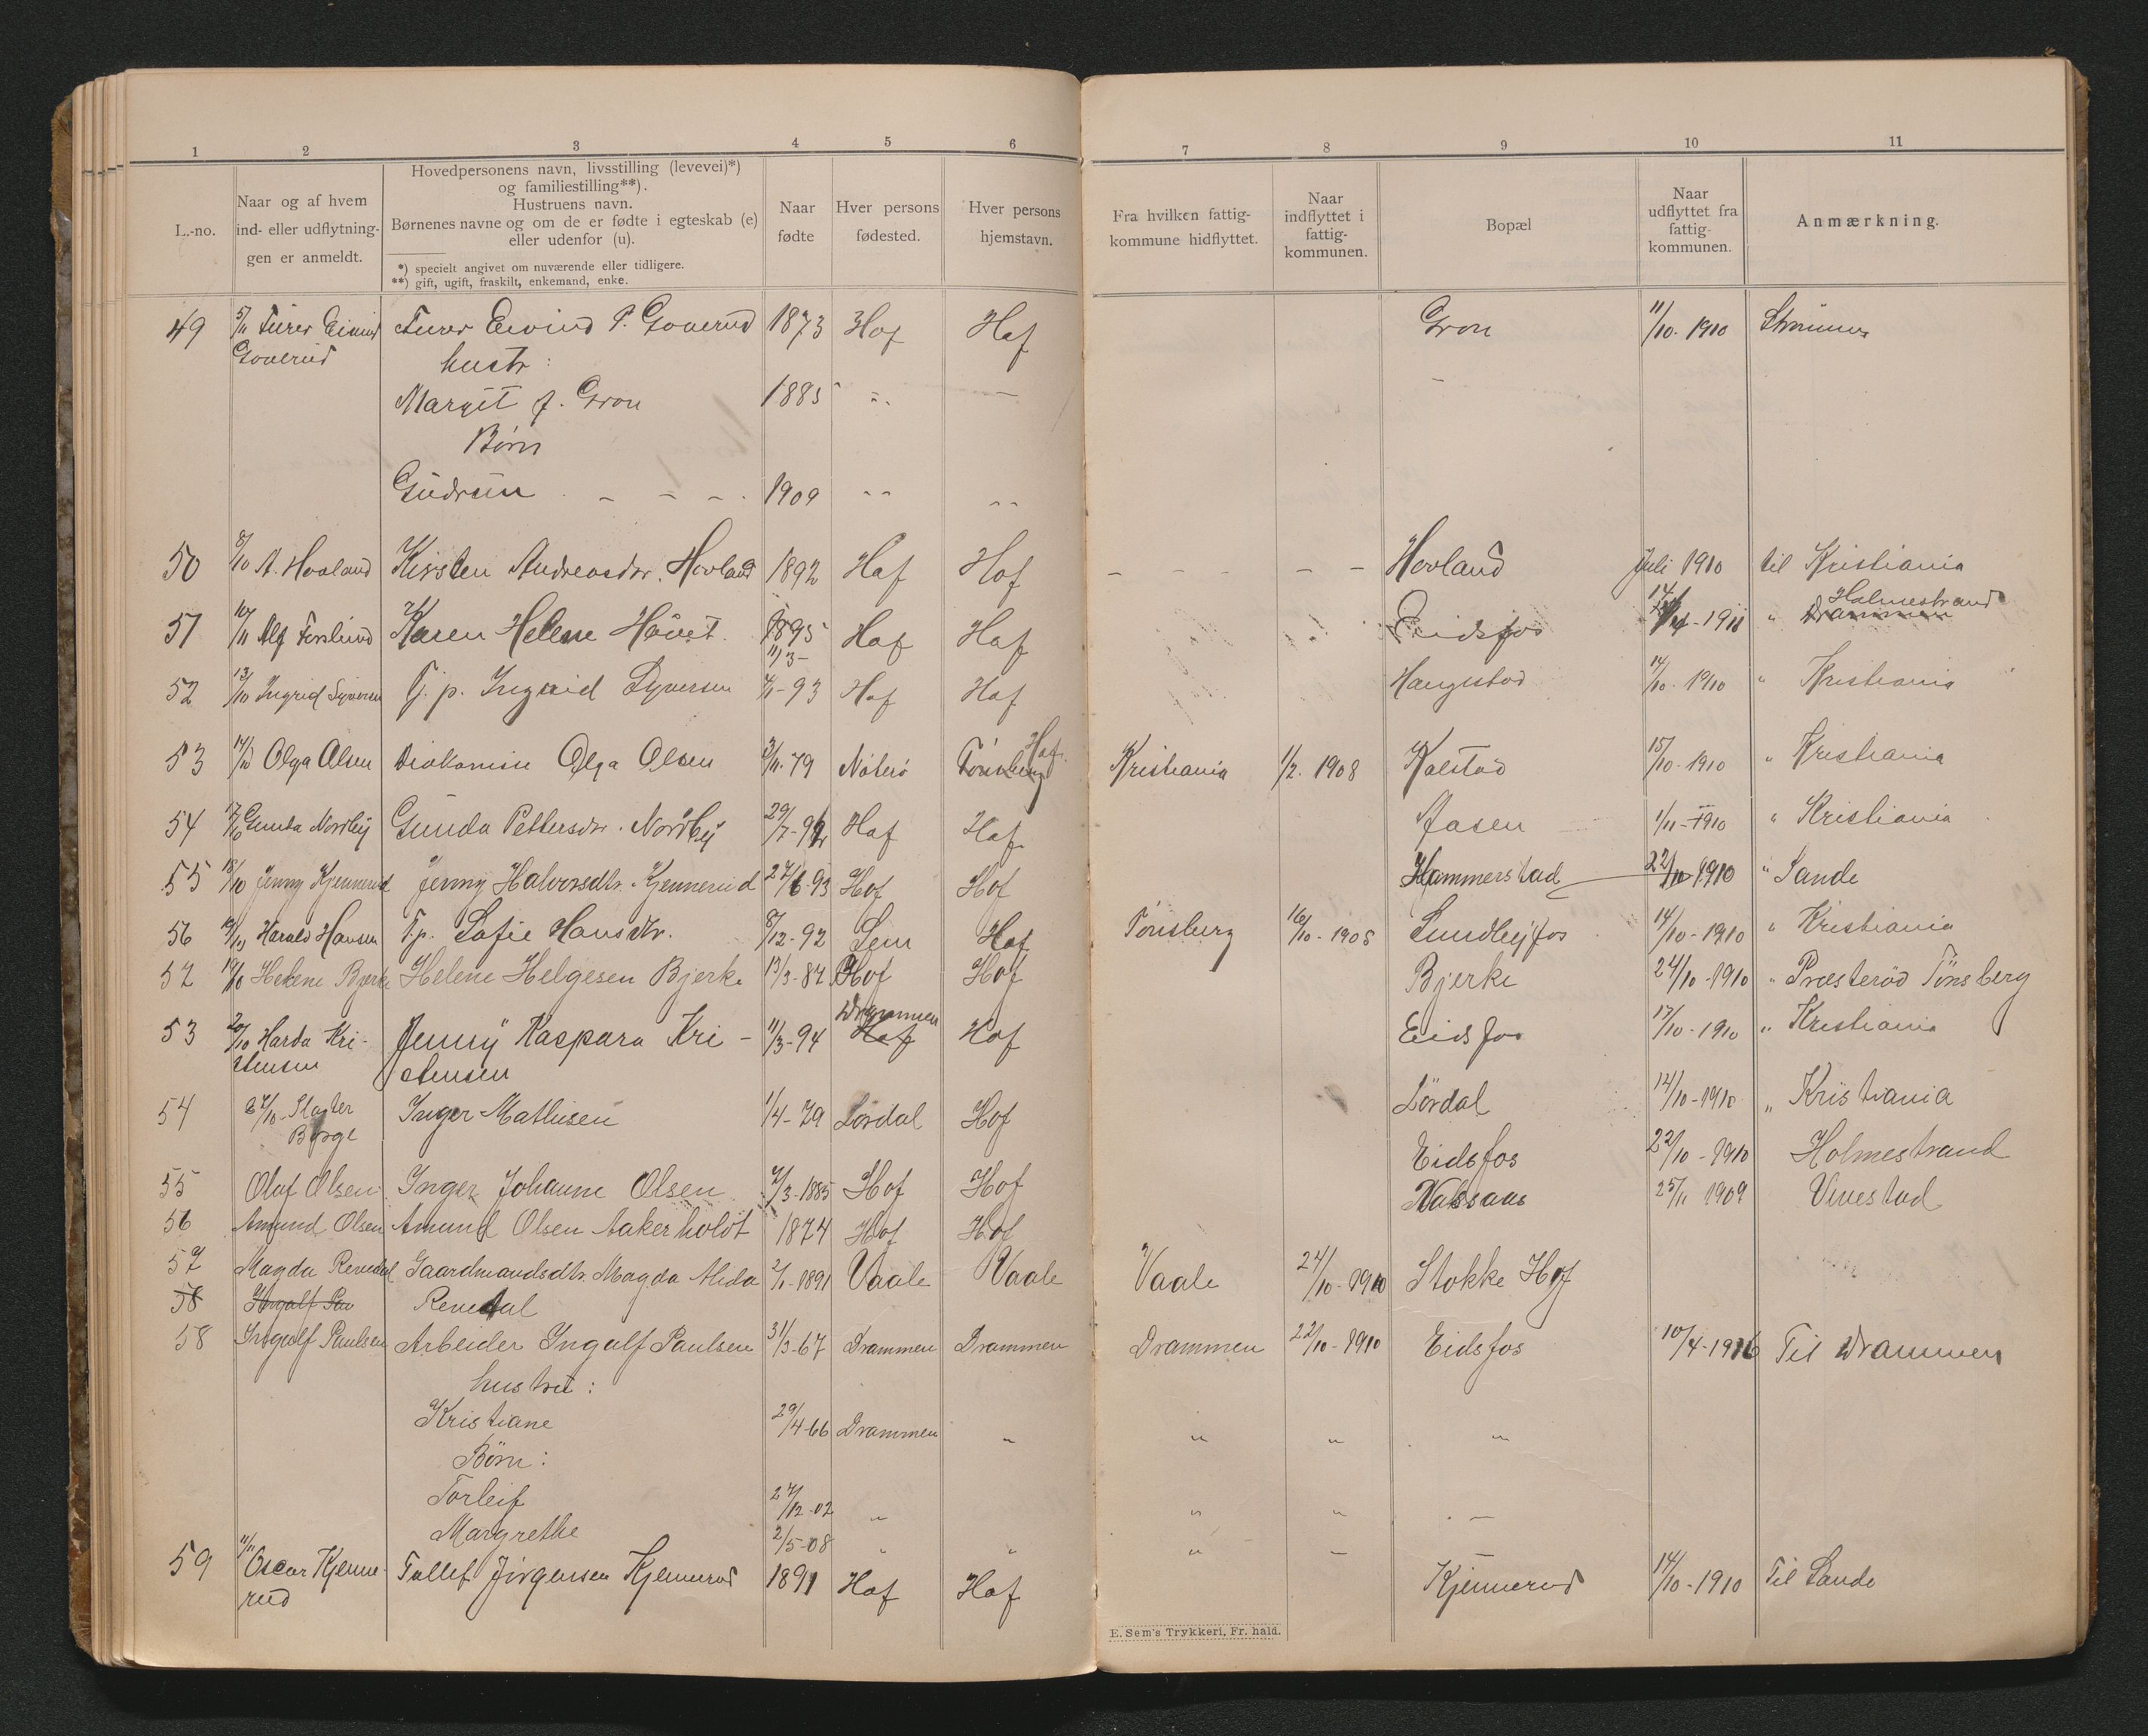 1 2 3 4 5 6 7 8 9 10 11
L.-no.
Naar og af hvem
ind- eller udflytnin-
gen er anmeldt.
Hovedpersonens navn, livsstilling (levevei)*)
og familiestilling**).
Hustruens navn.
Børnenes navne og om de er fødte i egteskab (e)
eller udenfor (u).
*) specielt angivet om nuværende eller tidligere.
**) gift, ugift, fraskilt, enkemand, enke.
Naar
fødte
Hver persons
fødested.
Hver persons
hjemstavn.
Fra hvilken fattig-
kommune hidflyttet.
Naar
indflyttet i
fattig-
kommunen.
Bopæl
Naar
udflyttet fra
fattig-
kommunen.
Anmærkning.
49 Eivind P. Goverud 1873 Hof Hof Gron 11/10. 1910
Goverud hustr:
Margit f. Gron 1885 " —
Børn
Gudrun - - - 1909 " "
50 8/10 A. Hovland Kirsten Andreasdtr. Hovland 1892 Hof Hof - - - - - Hovland Juli 1910 til Kristiania
Holmestrand
51 Alf Karen Helene 1895 Hof Hof Eidsfos " Drammen
11/3-
52 13/10 Ingrid Syversen Tj. p. Ingrid Syversen 93 Hof Hof Haugestad 14/10. 1910 " Kristiania
Hof.
53 14/10 Olga Olsen Diakonisse Olga Olsen 79 Nøterø Tønsberg Kristiania 1/2. 1908 Kalstad 15/10-1910 " Kristiania
54 17/10 Gunda Nordby Gunda Pettersdtr. Nordby 29/7-92 Hof Hof Aasen 1/11-1910 " Kristiania
55 18/10 Jenny Kjennerud Jenny Halvorsdtr. Kjennerud 27/6-93 Hof Hof Hammerstad 22/10 1910 " Sande
56 19/10 Harald Hansen T.p. Sofie Hansdtr. 8/12-92 Sem Hof Tønsberg 16/10-1908 Sundbyfos 14/10-1910 " Kristiania
57 19/10 Helene Bjerke Helene Helgesen Bjerke 13/3-87 Hof Hof Bjerke 24/10-1910 " Præsterød Tönsberg
Drammen
53 20/10 Harda Kri- Jenny Kaspara Kri- 11/3-94 Hof Hof Eidsfos 17/10-1910 " Kristiania
stensen stensen
54 27/10 Slagter Inger Mathisen 1/4-79 Lørdal Hof Lördal 12/10-1910 " Kristiania
Børge
55 Olaf Olsen Inger Johanne Olsen 7/3-1885 Hof Hof Eidsfos 22/10-1910 Holmestrand
56 Amund Olsen Amund Olsen Aakerholdt 1874 Hof Hof 25/11 1909 Vivestad
57 Magda Revedal Gaardmandsdtr. Magda Alida 2/1-1891 Vaale Vaale Vaale 24/10-1910 Stokke Hof
58 Ingolf Pau Revedal
58 Ingolf Paulsen Arbeider Ingolf Paulsen 31/3-67 Drammen Drammen Drammen 22/10-1910 Eidsfos 10/4-1916 Til Drammen
hustru:
Kristiane 29/4-66 Drammen " " " "
Børn:
Torleif 27/12-02 " " " -
Margrethe 2/5-08 " " " -
59 11/11 Oscar Kjenne- Tollef Jørgensen Kjennerud 1891 Hof Hof Kjennerud 14/10-1910 Til Sande
rud
E. Sem's Trykkeri, Fr. hald.